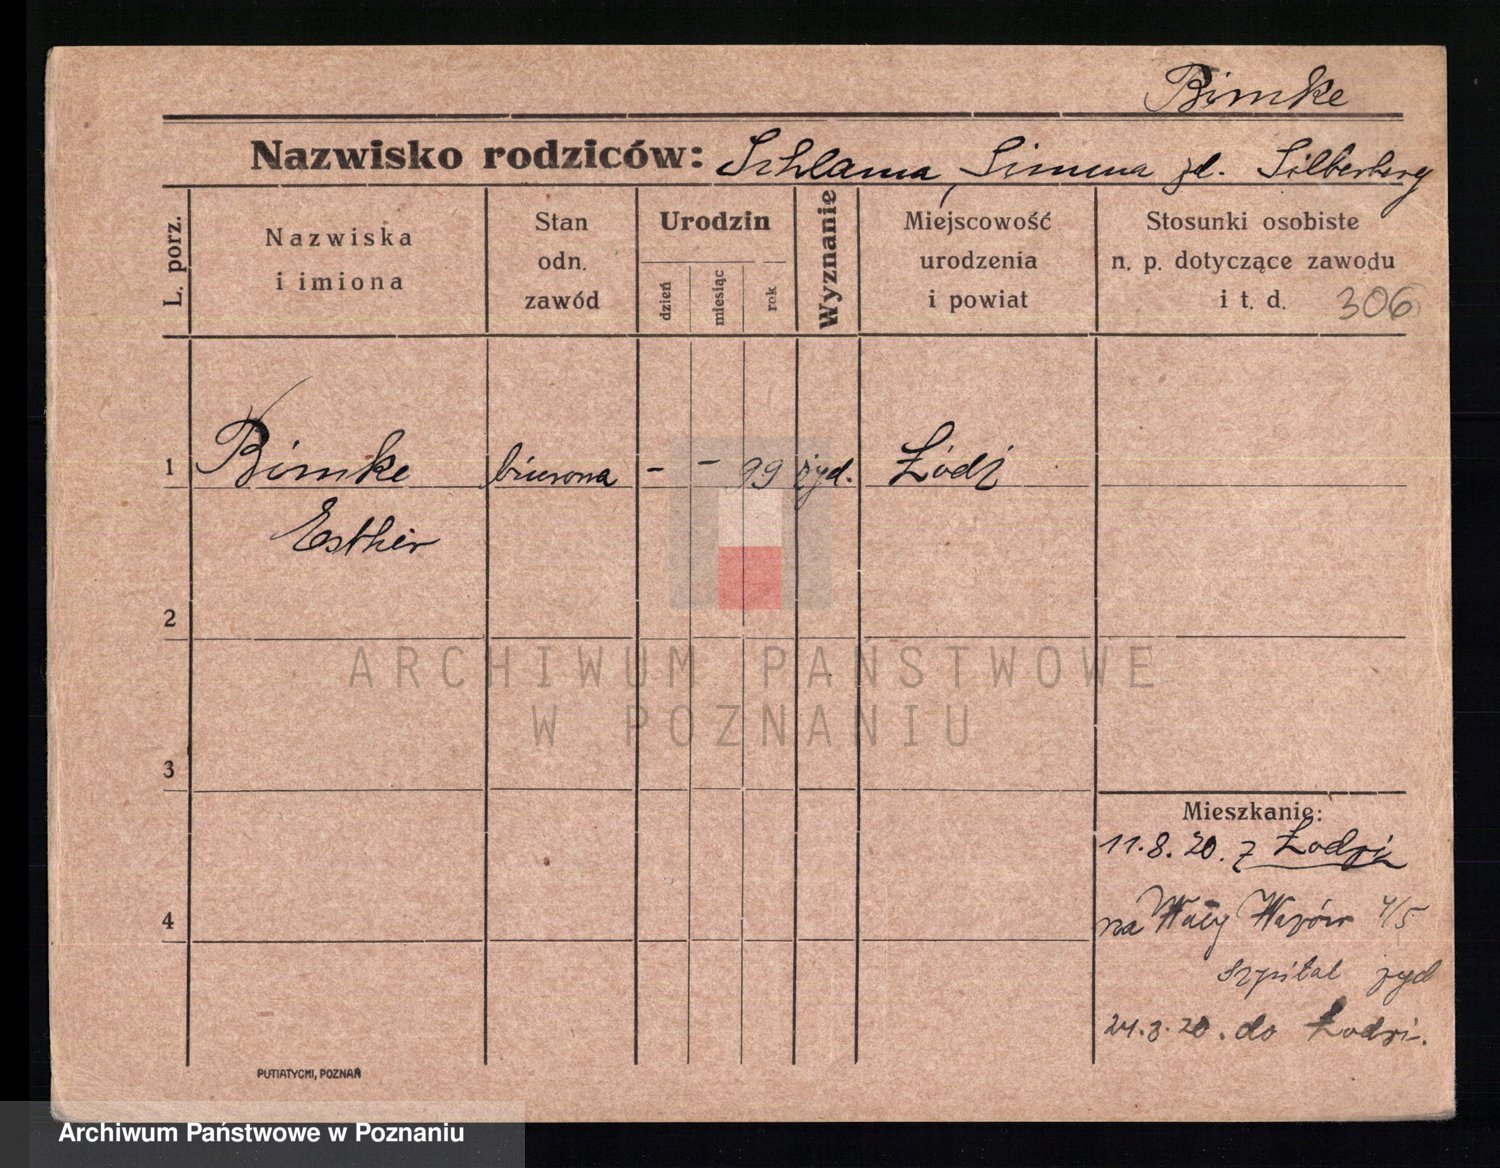 Bimke
Nazwisko rodziców: Schlama, Simma zd. Silberberg
L. porz.
Nazwiska
i imiona
Stan
odn.
zawód
Urodzin
dzień
miesiąc
rok
Wyznanie
Miejscowość
urodzenia
i powiat
Stosunki osobiste
n. p. dotyczące zawodu
i t. d. 306
1 Bimke biurowa - - 99 żyd. Łódź
Esther
2
3
4
Mieszkanie:
11.8.20. z Łodzi
na Wały Wazów 4/5
szpital żyd
24.8.20. do Łodzi.
PUTIATYCKI, POZNAŃ
ARCHIWUM PAŃSTWOWE
W POZNANIU
Archiwum Państwowe w Poznaniu